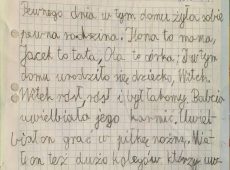 Pewnego dnia w tym domu żyła sobie
pewna rodzina. Ilona to mama,
Jacek to tata, Ola to córka. I w tym
domu urodziło się dziecko, Witek.
Witek rósł, rósł i był łakomy. Babcia
uwielbiała jego karmić. Uwiel-
biał on grać w piłkę nożną. Miał
on też dużo kolegów którzy uw-